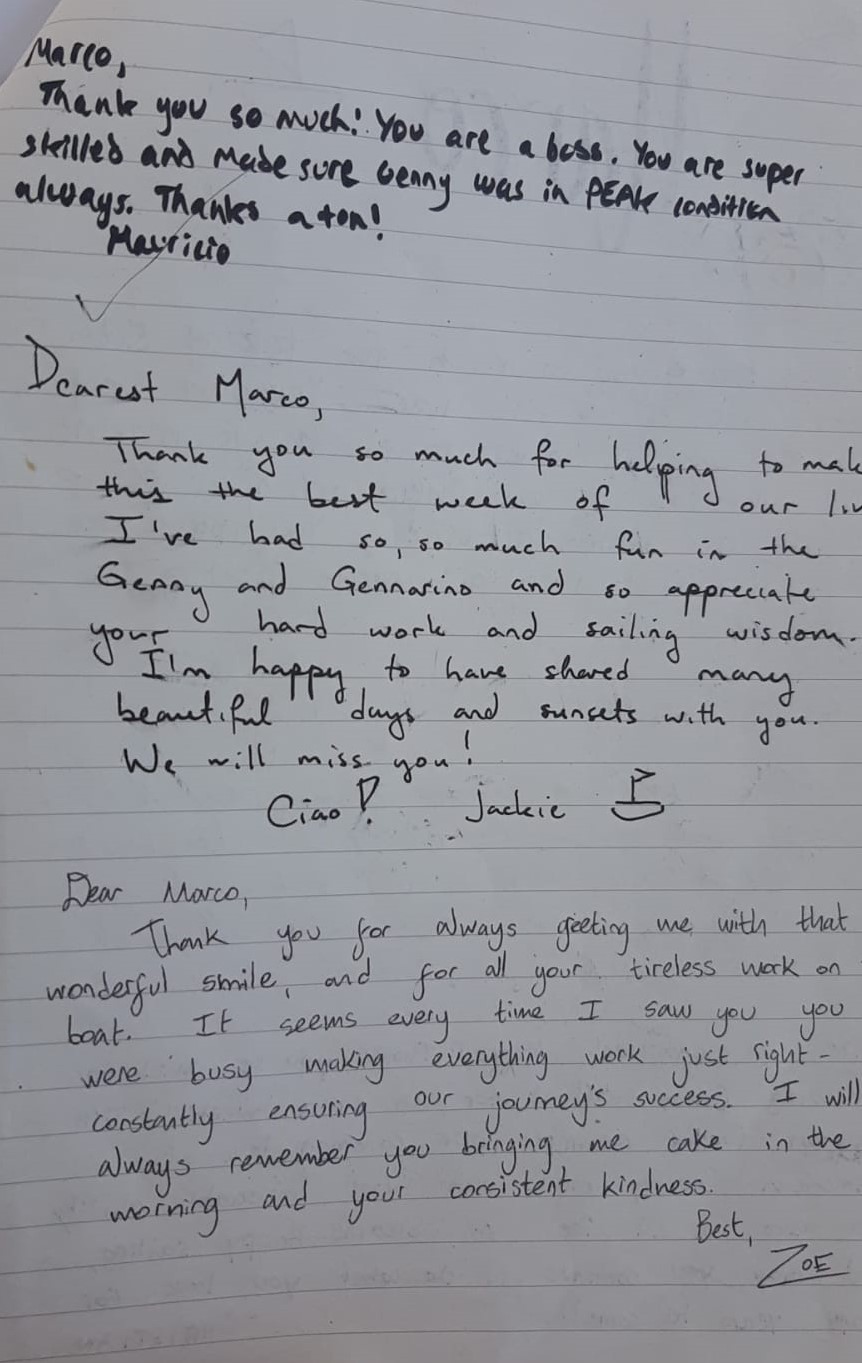 Marco,
Thank you so much! You are a boss. You are super
skilled and made sure Genny was in PEAK condition
always. Thanks a ton!
Mauricio
Dearest Marco,
Thank you so much for helping to mak
this the best week of our liv
I've had so, so much fun in the
Genny and Gennarino and so appreciate
your hard work and sailing wisdom.
I'm happy to have shared many
beautiful days and sunsets with you.
We will miss you!
Ciao! Jackie
Dear Marco,
Thank you for always geeting me with that
wonderful smile, and for all your tireless work on
boat. It seems every time I saw you you
were busy making everything work just right -
constantly ensuring our journey's success. I will
always remember you bringing me cake in the
morning and your consistent kindness.
Best,
ZOE